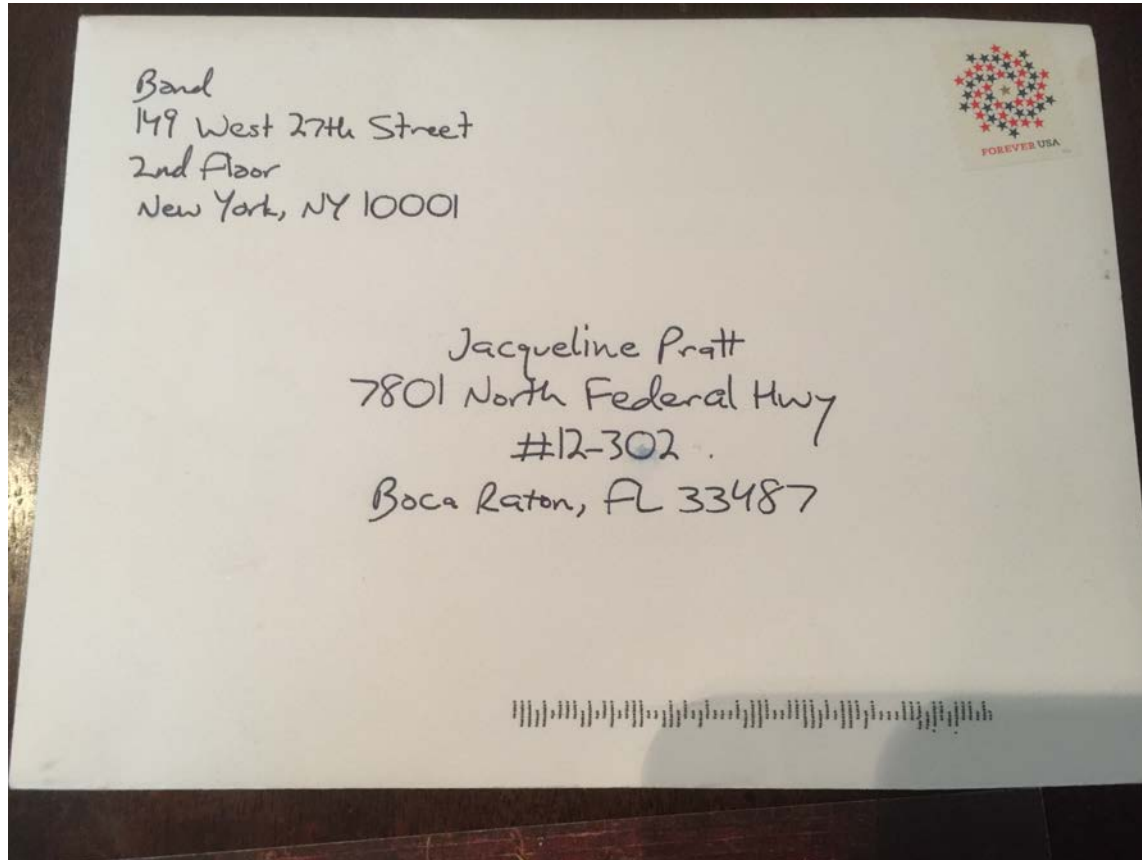 Band
149 West 27th Street
2nd Floor
New York, NY 10001
FOREVER USA
Jacqueline Pratt
7801 North Federal Hwy
#12-302
Boca Raton, FL 33487